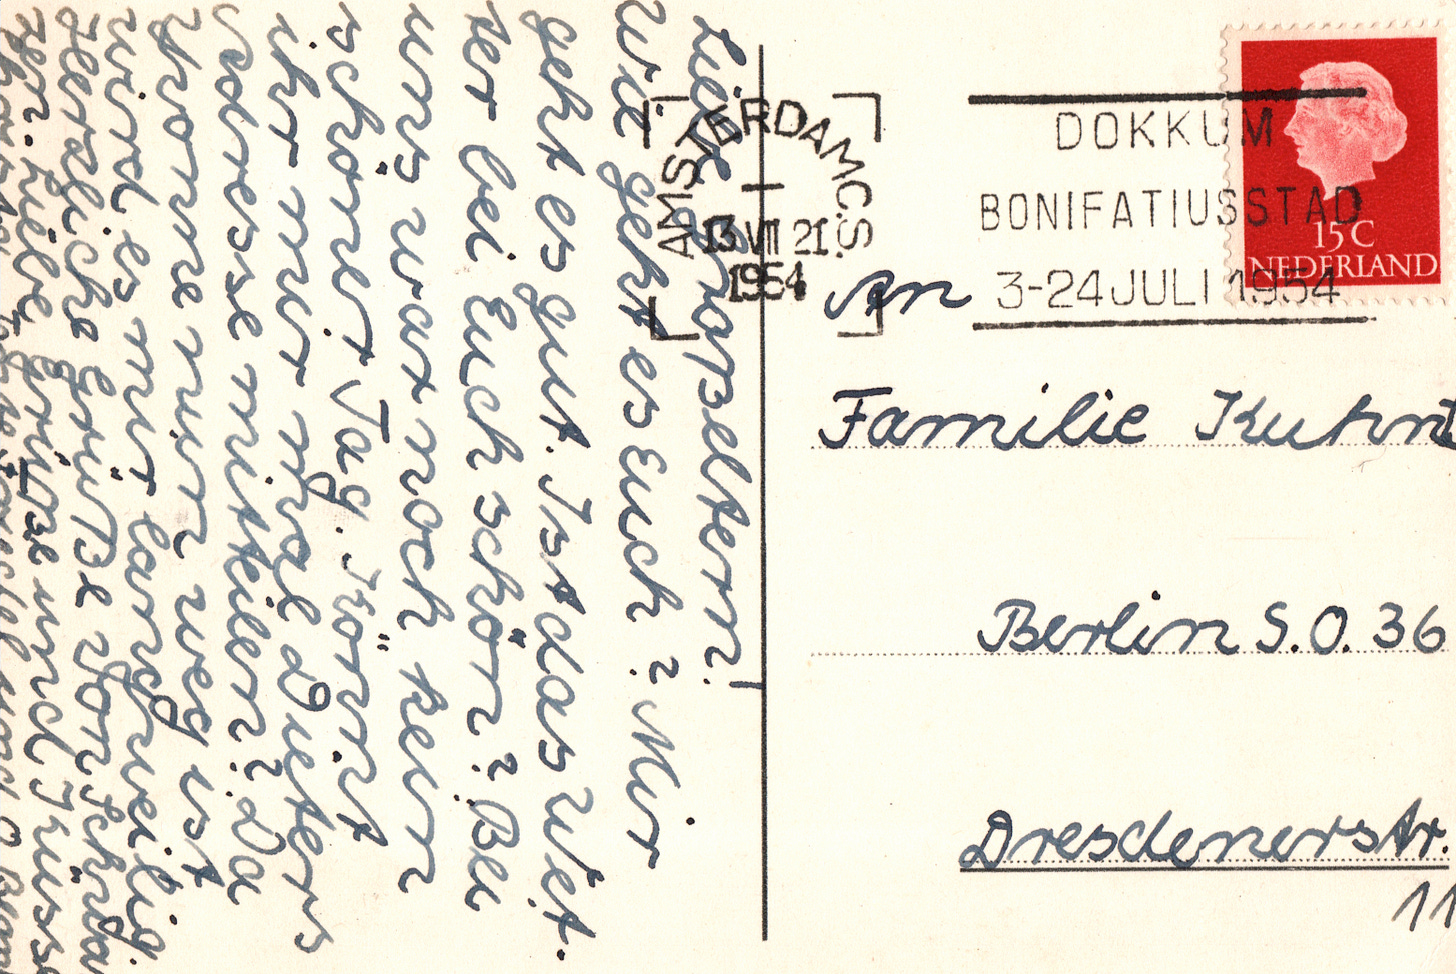 Liebe Großeltern!
Wie geht es Euch? Mir
geht es gut. Ist das Wet-
ter bei Euch schön? Bei
uns war noch kein
schöner Tag. Könnt
ihr mir mal Dieters
Adresse mitteilen? Da
Yvonne nun weg ist
wird es mir langweilig.
Herzliche Grüße von
zen. Liebe Grüsse und Küsse
AMSTERDAM C.S.
13 VII 21
1954
DOKKUM
BONIFATIUSSTAD
3-24 JULI 1954
15 C
NEDERLAND
An
Familie Kuhnt
Berlin S.O. 36
Dresdenerstr.
11